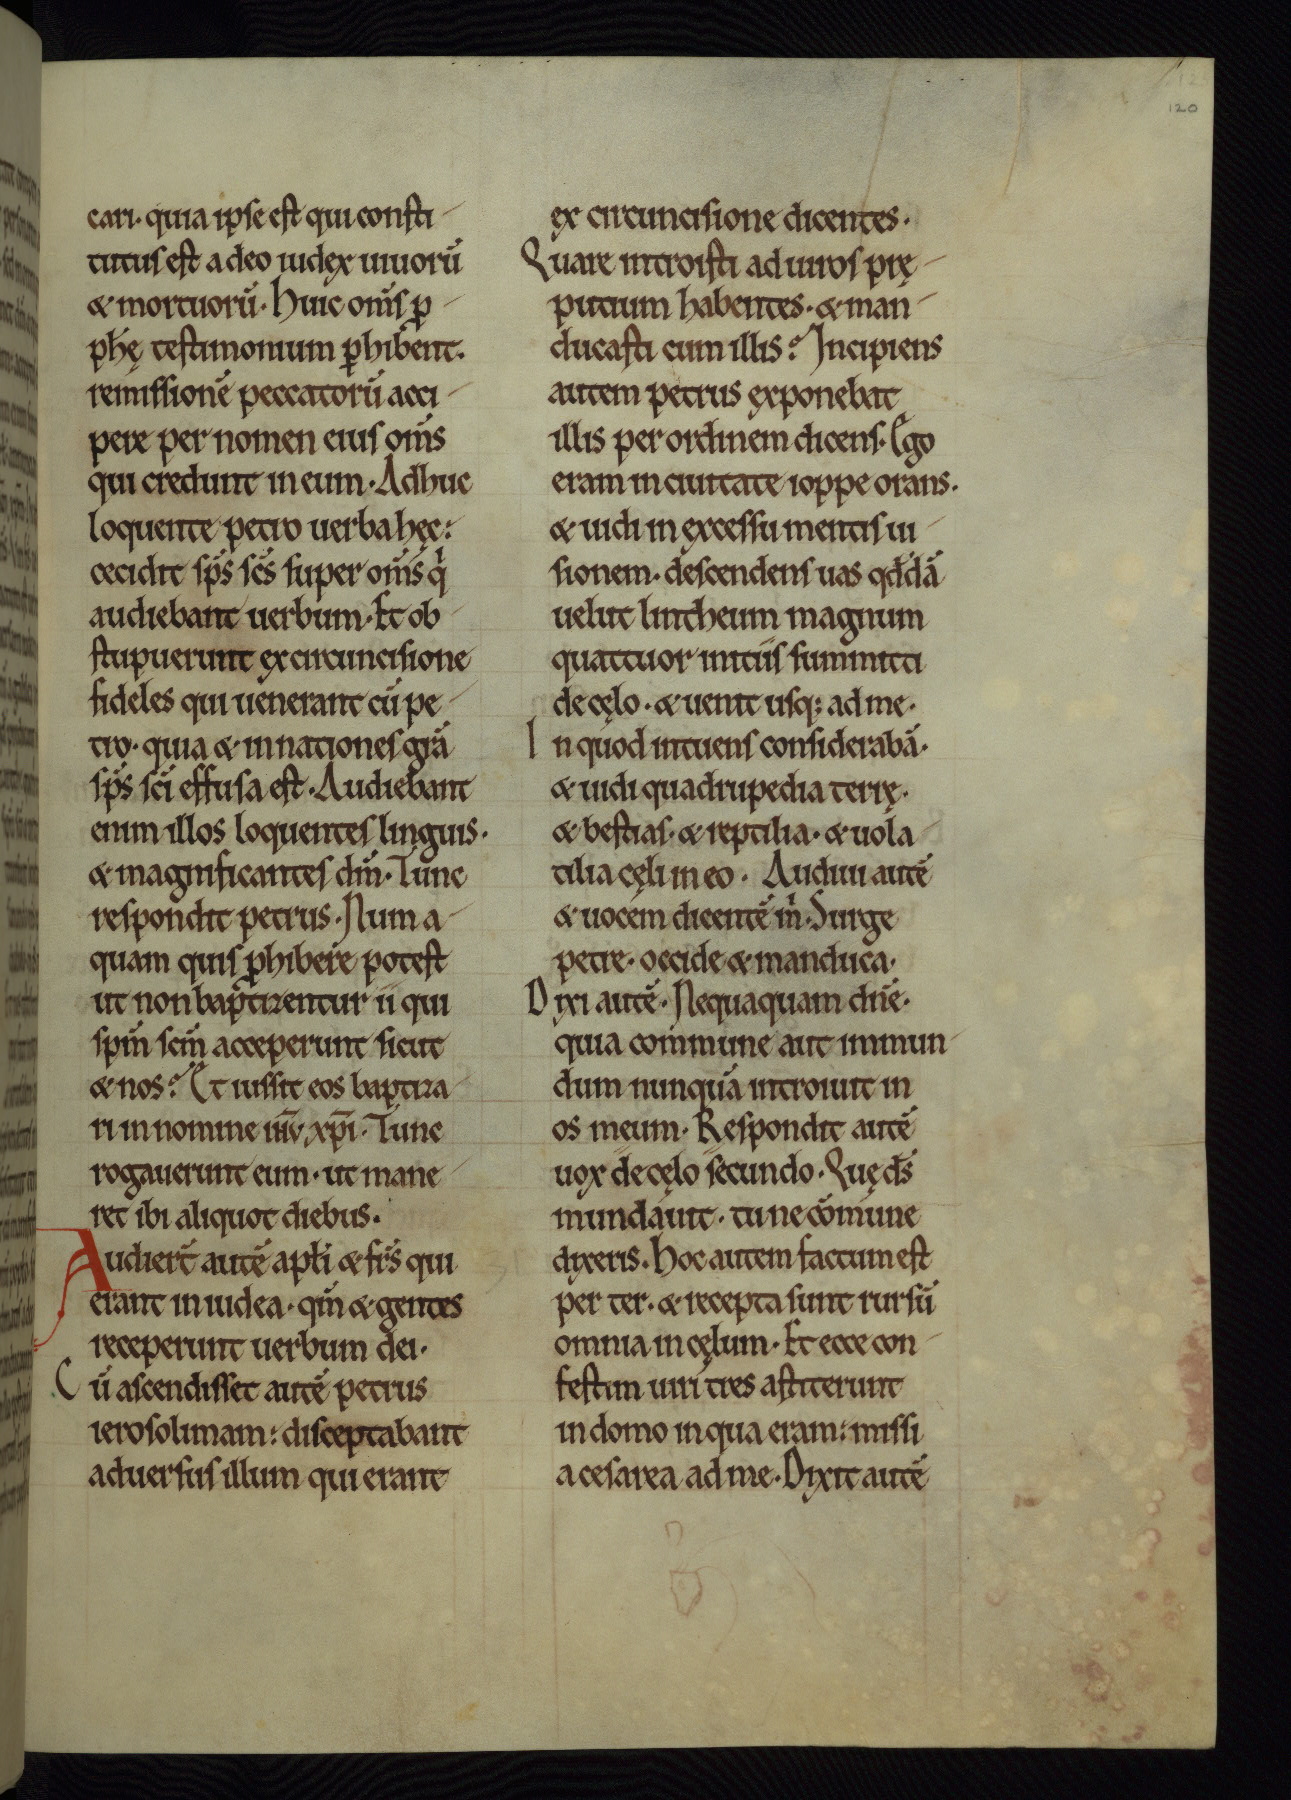 120
cari· quia ipse est qui consti-
tutus est a deo iudex uiuorū
& mortuorū· Huic om̄s ꝓ-
ph̄ę testimonium ꝓhibent·
remissionē peccatorū acci-
pere per nomen eius om̄s
qui credunt in eum· Adhuc
loquente petro uerba hęc:
cecidit sp̄s sc̄s super om̄s qͥ
audiebant uerbum· Et ob
stupuerunt ex circuncisione
fideles qui uenerant cū pe-
tro· quia & in nationes gr̄a
sp̄s sc̄i effusa est· Audiebant
enim illos loquentes linguis·
& magnificantes dm̄· Tunc
respondit petrus· Num a-
quam quis ꝓhibere potest
ut non baptizentur ii qui
sp̄m sc̄m acceperunt sicut
& nos? Et iussit eos baptiza-
ri in nomine ih̄v xp̄i· Tunc
rogauerunt eum· ut mane-
ret ibi aliquot diebus·
Audier̄t autē apłi & fr̄s qui
erant in iudea· qm̄ & gentes
receperunt uerbum dei·
Cū ascendisset autē petrus
ierosolimam: disceptabant
aduersus illum qui erant
ex circuncisione dicentes·
Quare introisti ad uiros prę-
putium habentes· & man-
ducasti cum illis? Incipiens
autem petrus exponebat
illis per ordinem dicens· Ego
eram in ciuitate ioppe orans·
& uidi in excessu mentis ui-
sionem· descendens uas qd̄dā
uelut lintheum magnum
quattuor initiis summitti
de cęlo· & uenit usq; ad me·
In quod intuens considerabā·
& uidi quadrupedia terrę·
& bestias· & reptilia· & uola-
tilia cęli in eo· Audiui autē
& uocem dicentē m̄· Surge
petre· occide & manduca·
Dixi autē· Nequaquam dn̄e·
quia commune aut inmun-
dum nunquā introiuit in
os meum· Respondit autē
uox de cęlo secundo· Quę ds̄
mundauit· tu ne cōmune
dixeris· Hoc autem factum est
per ter· & recepta sunt rursū
omnia in cęlum· Et ecce con-
festim uiri tres astiterunt
in domo in qua eram: missi
a cesarea ad me· Dixit autē